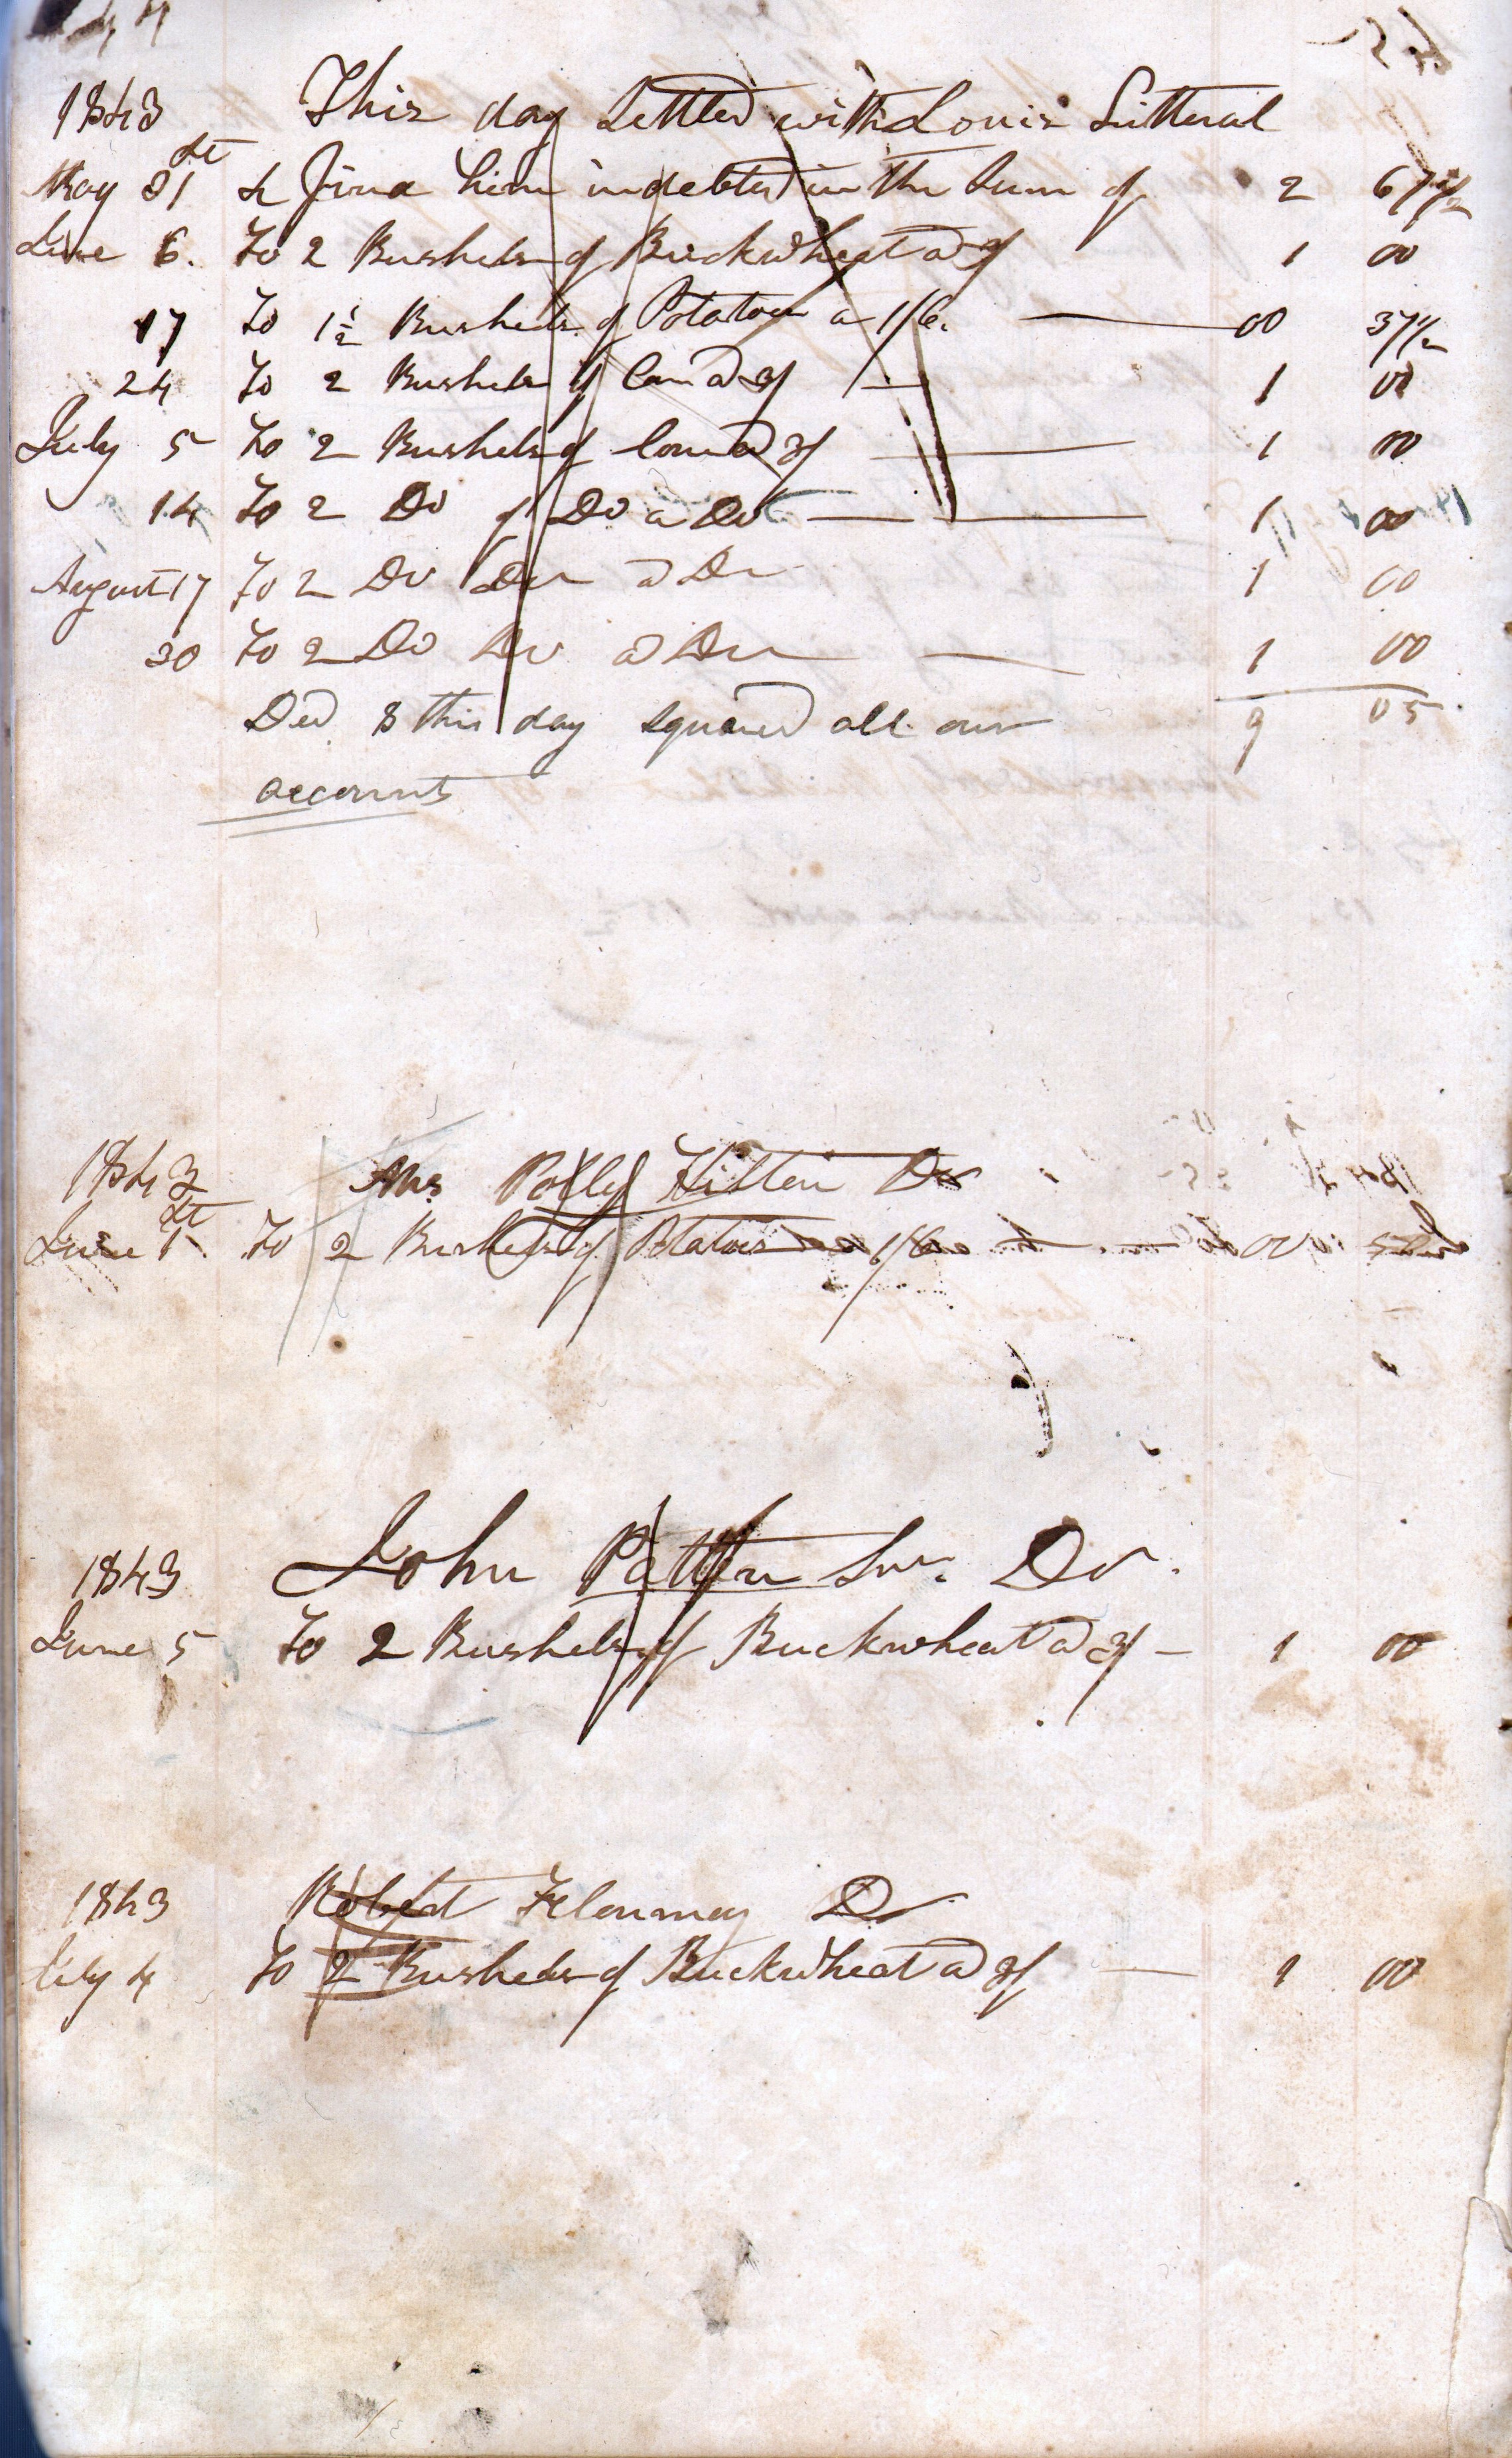 44
1843 This day Settled with Louis Litteral
May 31st & find him indebted in the Sum of 2 67 1/2
June 6. To 2 Bushels of Buckwheat a 3/ 1 00
17 To 1 1/2 Bushels of Potatoes a 1/6. 00 37 1/2
24 To 2 Bushels of Corn a 3/ 1 00
July 5 To 2 Bushels of Corn a 3/ 1 00
14 To 2 Do of Do a Do 1 00
August 17 To 2 Do Do a Do 1 00
30 To 2 Do Do a Do 1 00
9 05
Decr 8 this day squared all our
accounts
1843 Mrs Polly Hilton Dr
June 1st To 2 Bushels of Potatoes a 1/6 00 50
1843 John Patton Snr. Dr.
June 5 To 2 Bushels of Buckwheat a 3/ 1 00
1843 Robert Flournoy Dr
July 4 To 2 Bushels of Buckwheat a 3/ 1 00